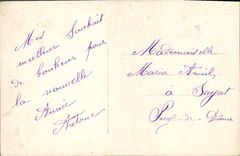 Mes
meilleur Souhait
de bonheur pour
la nouvelle
Année
Mademoiselle
Maria
à Sayat
Puy-de-Dôme